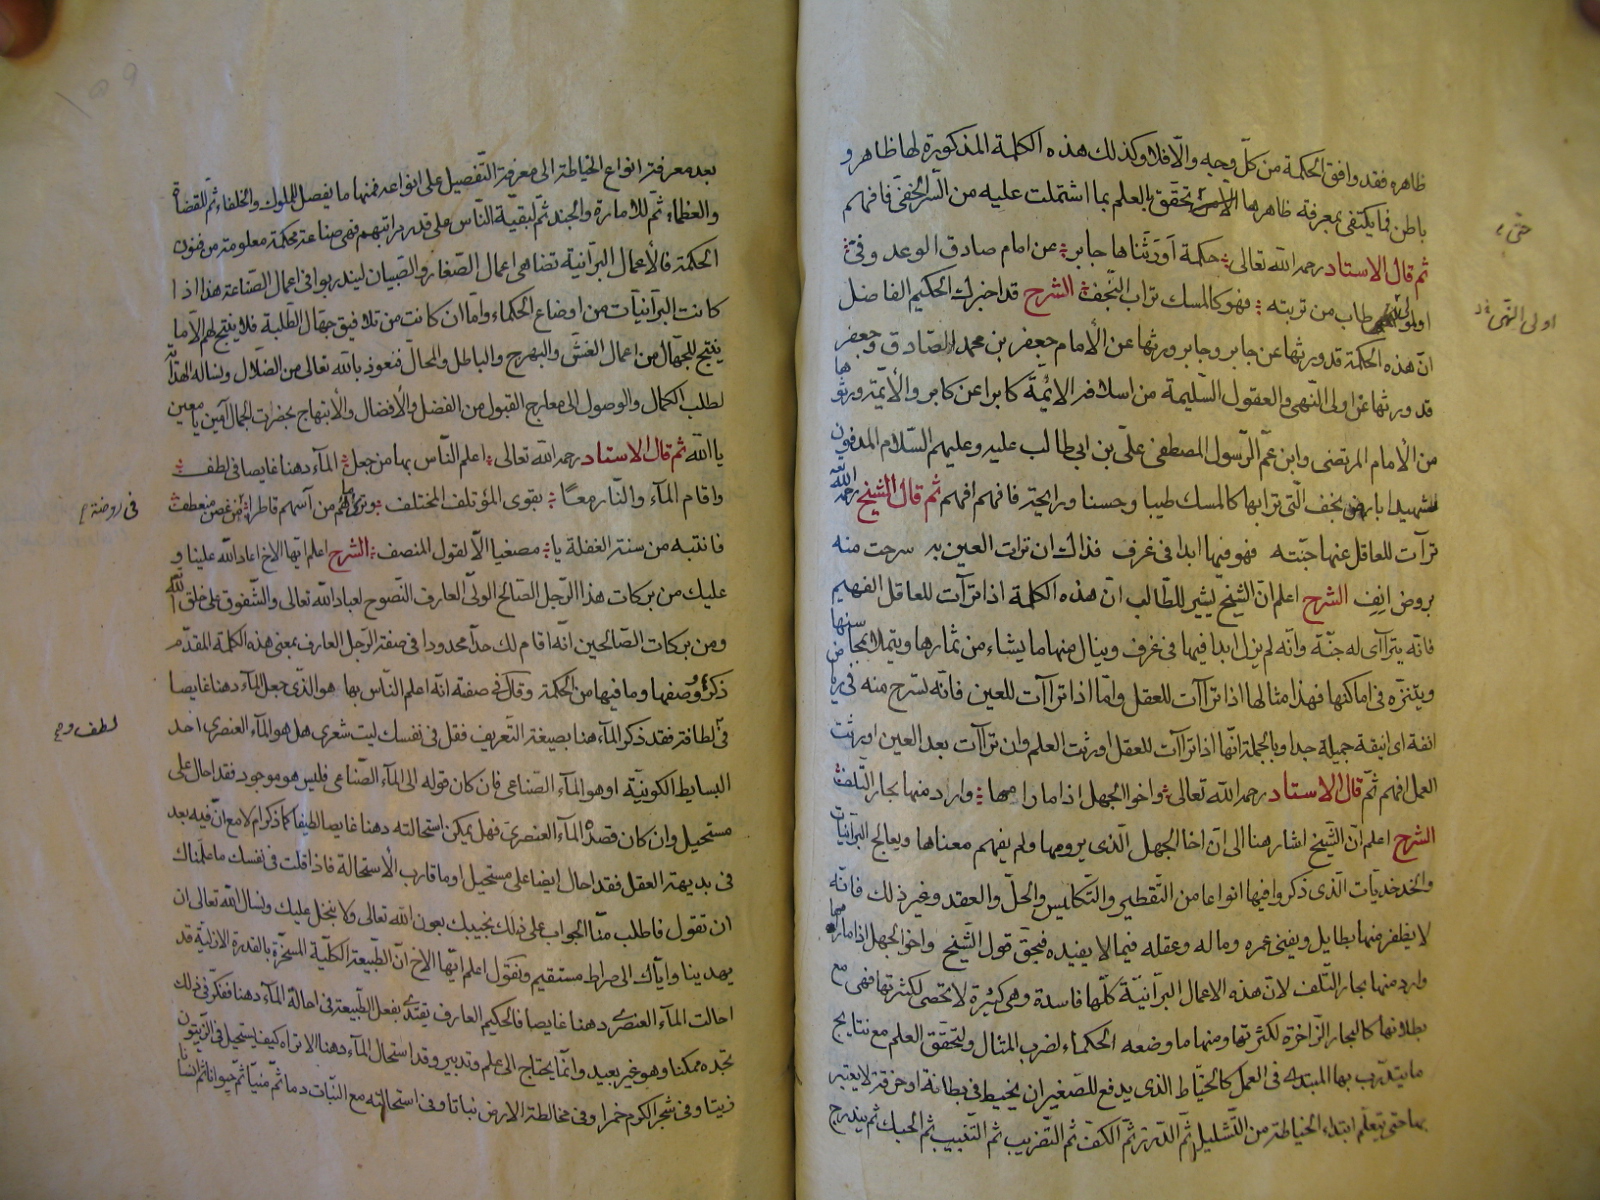 ظاهره فقد وافق الحكمة من كلّ وجه والّا فلا وكذلك هذه الكلمة المذكورة لها ظاهر و
باطن فما يكتفى بمعرفة ظاهرها تحقق بالعلم بما اشتملت عليه من السّر الخفىّ فافهم
ثم قال الاستاد رحمه الله تعالى حكمة اَورَثَناها جابر عن امام صادق الوعد وفىّ
طاب من تربته فهو كالمسك تراب النّجف الشرح قد اخبرك الحكيم الفاضل
انّ هذه الحكمة قد ورثها عن جابر وجابر ورثها عن الأمام جعفر بن محمد الصّادق وجعفر
قد ورثها عن اولى النّهى والعقول السّليمة من اسلافه الائِمّة كابرا عن كابر والأئمّة ورثوها
من الأمام المرتضى وابن عمّ الرّسول المصطفى علىّ بن ابى طالب عليه وعليهم السّلام المدفون
بنجف الّتى ترابها كالمسك طيبا وحسنا ورايحة فافهم افهم ثم قال الشيخ رحمه الله
ترآت للعاقل عنها جنّته فهو فيها ابدا فى غرف فذاك ان ترات العين به سرحت منه
بروض اَنِف الشرح اعلم انّ الشيخ يشير للطّالب انّ هذه الكلمة اذا ترآت للعاقل الفهيم
فانّه يترآاى له جنّة وانّه لم يزل ابدا فيها فى غرف وينال منها ما يشاء من ثمارها ويتملا بمحاسنها
ويتنزّه فى اماكنها فهذا مثالها اذا تراآت للعقل وامّا اذا تراآت للعين فانّه تسرح منه فى رياض
انفة اى انيقة جميلة جدا وبالجملة انّها اذا تراآت للعقل اورثت العلم وان ترآات بعد العين اورثت
العمل افهم ثمّ قال الاستاد رحمه الله تعالى واخوا الجهل اذا ما رامها وارد منها بحار التّلف
الشرح اعلم انّ الشيخ اشار هنا الى انّ اخا الجهل الّذى يرومها ولم يفهم معناها ويعالج البرّانيّات
والخدخديّات الّذى ذكروا فيها انواعا من التّقطير والتّكاليس والحلّ والعقد وغير ذلك فانّه
لا يظفر منها بطايل ويفنى عمره وماله وعقله فيما لا يفيده فبحقّ قول الشّيخ واخو الجهل اذا ما رامها
وارد منها بحار التّلف لانّ هذه الاعمال البرّانيّة كلّها فاسدة وهى كثيرة لا تحصى لكثرتها فهى مع
بطلانها كالبحار الزّاخرة لكثرتها ومنها ما وضعه الحكماء لضرب المثال وليتحقّق العلم مع نتايج
ما يتدرّب بها المبتدى فى العمل كالخيّاط الذى يدفع للصّغير ان يخيط فى بطانة او خرقة لا يعتبر
بها حتى يتعلّم ابتداء الخياطة من التّشليل ثم الدّرز ثمّ الكفّ ثم التّضريب ثم التّنبيب ثم الحبك ثم يندرج
حتى
اولى النهى
بعد معرفة انواع الخياطة الى معرفة التّفصيل على انواعه فمنها ما يفصل للملوك والخلفاء ثمّ للقضاة
والعظماء ثمّ للامارة والجند ثمّ لبقيّة النّاس على قدر مراتبهم فهى صناعة محكمة معلومة من فنون
الحكمة فالأعمال البرّانية تضاهى اعمال الصّغار والصّبيان ليتدربوا فى اعمال الصّناعة هذا اذا
كانت البرّانيّات من اوضاع الحكماء وامّا ان كانت من تلافيق جهّال الطّلبة فلا ينتج لهم الّا ما
ينتج للجهّال من اعمال الغشّ والبهرج والباطل والمحال فنعوذ بالله تعالى من الضّلال ونساله الهداية
لطلب الكمال والوصول الى معارج القبول من الفضل والأفضال والأبتهاج بحضرات الجمال آمين يا معين
يا الله ثم قال الاستاد رحمه الله تعالى اعلم النّاس بها من جعل المآء دهنا غايصا فى لطف
واقام المآء والنّار معًا بقوى المؤتلف المختلف من آسهم قاطرا من غصن منعطف
فانتبه من سنة الغفلة يا مصغيا الّا لقول المنصف الشرح اعلم ايّها الاخ اعاد الله علينا و
عليك من بركات هذا الرّجل الصّالح الولىّ العارف النّصوح لعباد الله تعالى والشّفوق على خلق الله
ومن بركات الصّالحين انّه اقام لك حدّا محدودا فى صفة الرّجل العارف بمعنى هذه الكلمة المقدّم
ذكرها ووصفها وما فيها من الحكمة وقال فى صفته انّه اعلم النّاس بها هو الّذى جعل المآء دهنا غايصا
فى لطافته فقد ذكر المآء هنا بصيغة التّعريف فقل فى نفسك ليت شعرى هل هو المآء العنصرى احد
البسايط الكونيّة او هو المآء الصّناعى فان كان قوله الى المآء الصّناعى فليس هو موجود فقد احال على
مستحيل وان كان قصده المآء العنصرىّ فهل يمكن استحالته دهنا غايصا لطيفا كما ذكر ام لا مع انّ فيه بعد
فى بديهة العقل فقد احال ايضا على مستحيل او ما قارب الأستحالة فاذا قلت فى نفسك ما علّمناك
ان تقول فاطلب منّا الجواب على ذلك نجيبك بعون الله تعالى ولا نبخل عليك ونسال الله تعالى ان
يهدينا وايّاك الى صراط مستقيم ونقول اعلم ايّها الاخ انّ الطّبيعة الكلّية المسخّرة بالقدرة الازليّة قد
احالت المآء العنصرى دهنا غايصا فالحكيم العارف يقتدى بفعل الطّبيعة فى احالة المآء دهنا ففكّر فى ذلك
تجده ممكنا وهو غير بعيد وانّما يحتاج الى علم وتدبير وقد استحال المآء دهنا الا تراه كيف يستحيل فى الزّيتون
زيتا وفى شجر الكرم خمرا وفى مخالطة الارض نباتا وفى استحالته مع النّبات دما ثمّ منيّا ثمّ حيوانا ثمّ انسانا
فى روضة
لطف